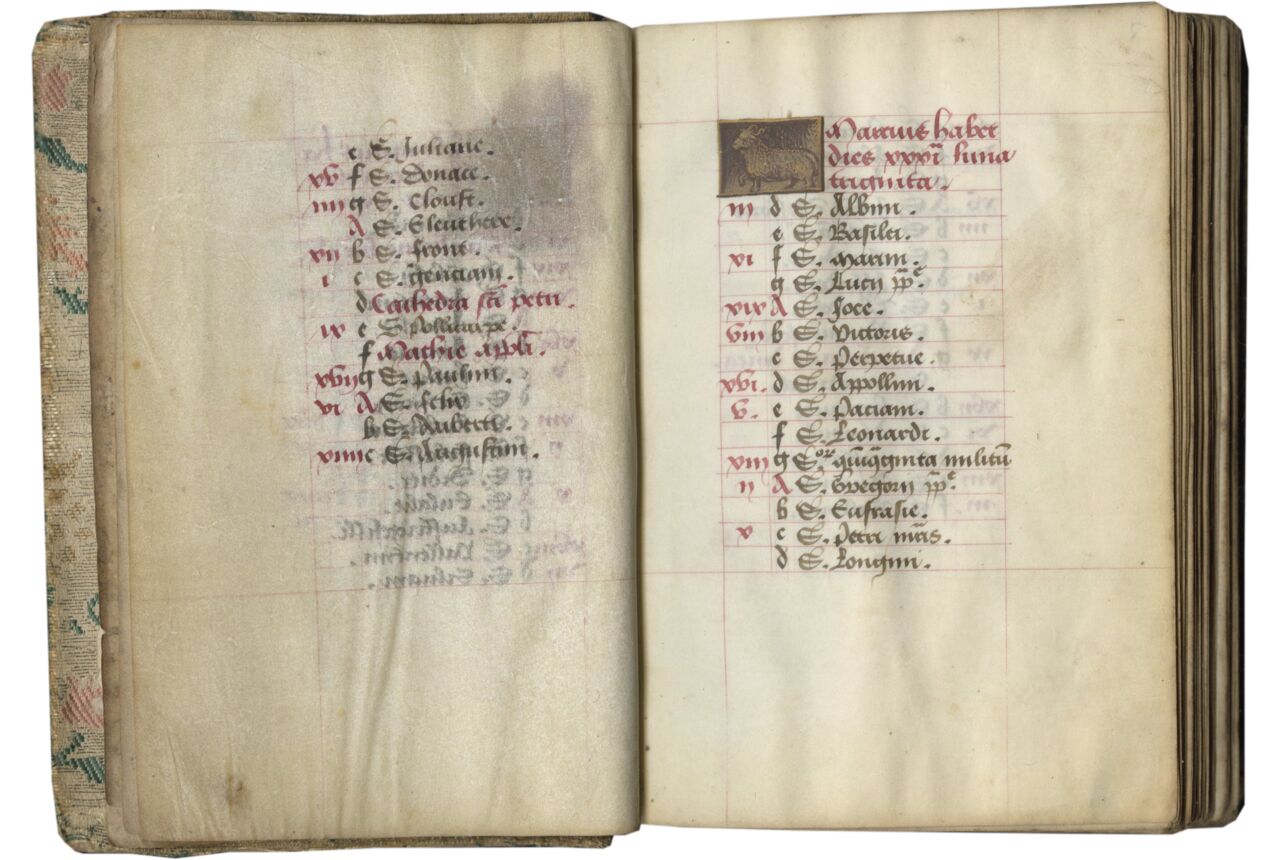 e S. Juliane.
xv f S. Donace.
iiii g S. Clouse.
A S. Eleuthere.
xii b S. Irone.
i c S. genciani.
d Cathedra sci petri.
ix e S. Pollicarpe.
f Mathie appli.
xvii g S. Paulini.
vi A S.
b S. Auberti.
xiiii c S. Augustini.
Marcius habet
dies xxxi luna
triginta.
iii d S. Albini.
e S. Basilei.
xi f S. Marini.
g S. Lucii pp e
xix A S. Joce.
viii b S. Victoris.
c S. Perpetue.
xvi. d S. Appollini.
v. e S. Paciani.
f S. Leonardi.
xiii g S. or militū
ii A S. Gregorii pp e.
b S. Eufrasie.
x c S. Petri mris.
d S. Longini.